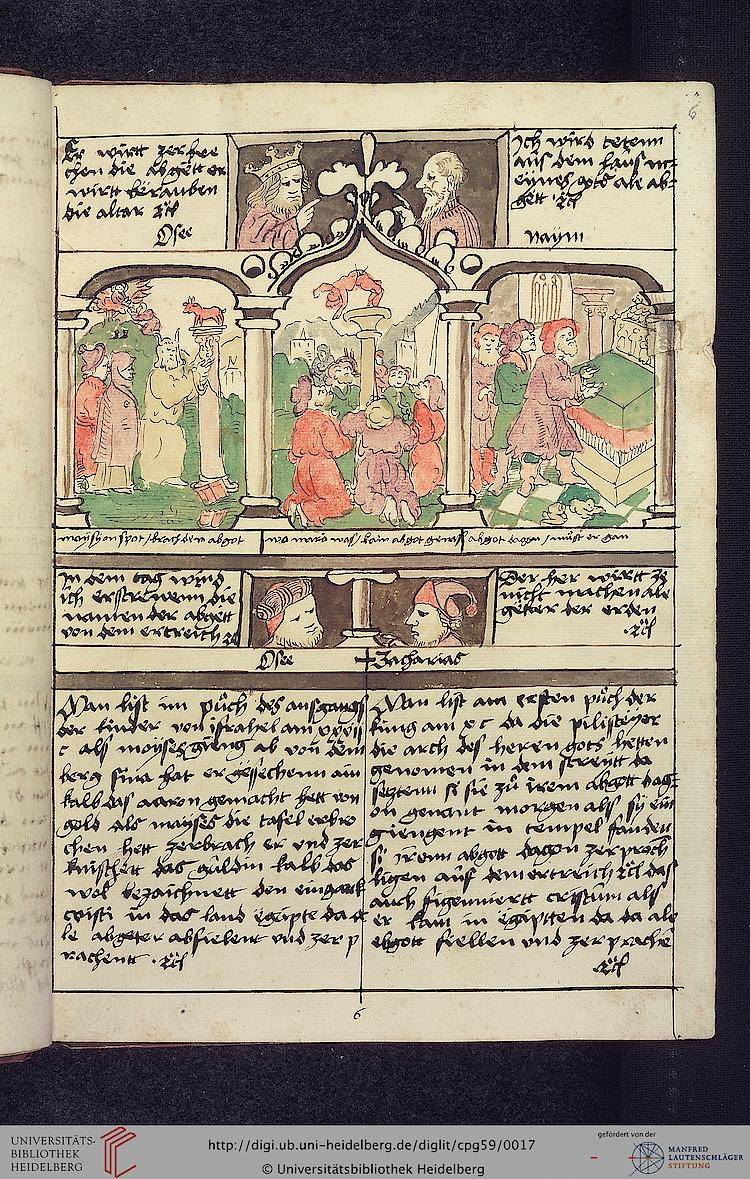 6
Er wirtt zerbre
chen die abgett er
wirtt berauben
die altar
Osee
Jch wird tetenn
aus dem haus
deynes gots ale ab-
gett
naum
moyses spot / brach dem abgot
wo maria was / kain abgot genas
abgot dagon / must er gan
Jn dem tag wird
ich erstrewenn die
namen der abgett
von dem ertreich
Der her wirtt ze
nicht machen ale
getter der erden
Osee
Zacharias
Man list im puch des ausgangs
der kinder von israhel am xxxii
c als moyses gieng ab von dem
berg sina hat er gessechenn ain
kalb das aaron gemacht hett von
gold als moyses die tafel erbro
chen hett zerbrach er und zer
knischett das guldin kalb das
wol bezaichnett den eingankk
cristi in das land egipte da
le abgeter abfielent und zer p
rachentt
Man list am ersten puch der
kung am v c da die pilisteyer
die arch des heren gots hetten
genomen in dem streytt da
setztenn si sie zu irem abgott dag-
on genant morgen als sy ein
giengent in tempel fanden
si irenn abgott dagon zerproch
ligen auf dem ertreich das
auch figenniertt cristum als
er kam in egiptten da da ale
abgott fiellen und zerprachen
6
UNIVERSITÄTS-
BIBLIOTHEK
HEIDELBERG
http://digi.ub.uni-heidelberg.de/diglit/cpg59/0017
© Universitätsbibliothek Heidelberg
gefördert von der
MANFRED
LAUTENSCHLÄGER
STIFTUNG